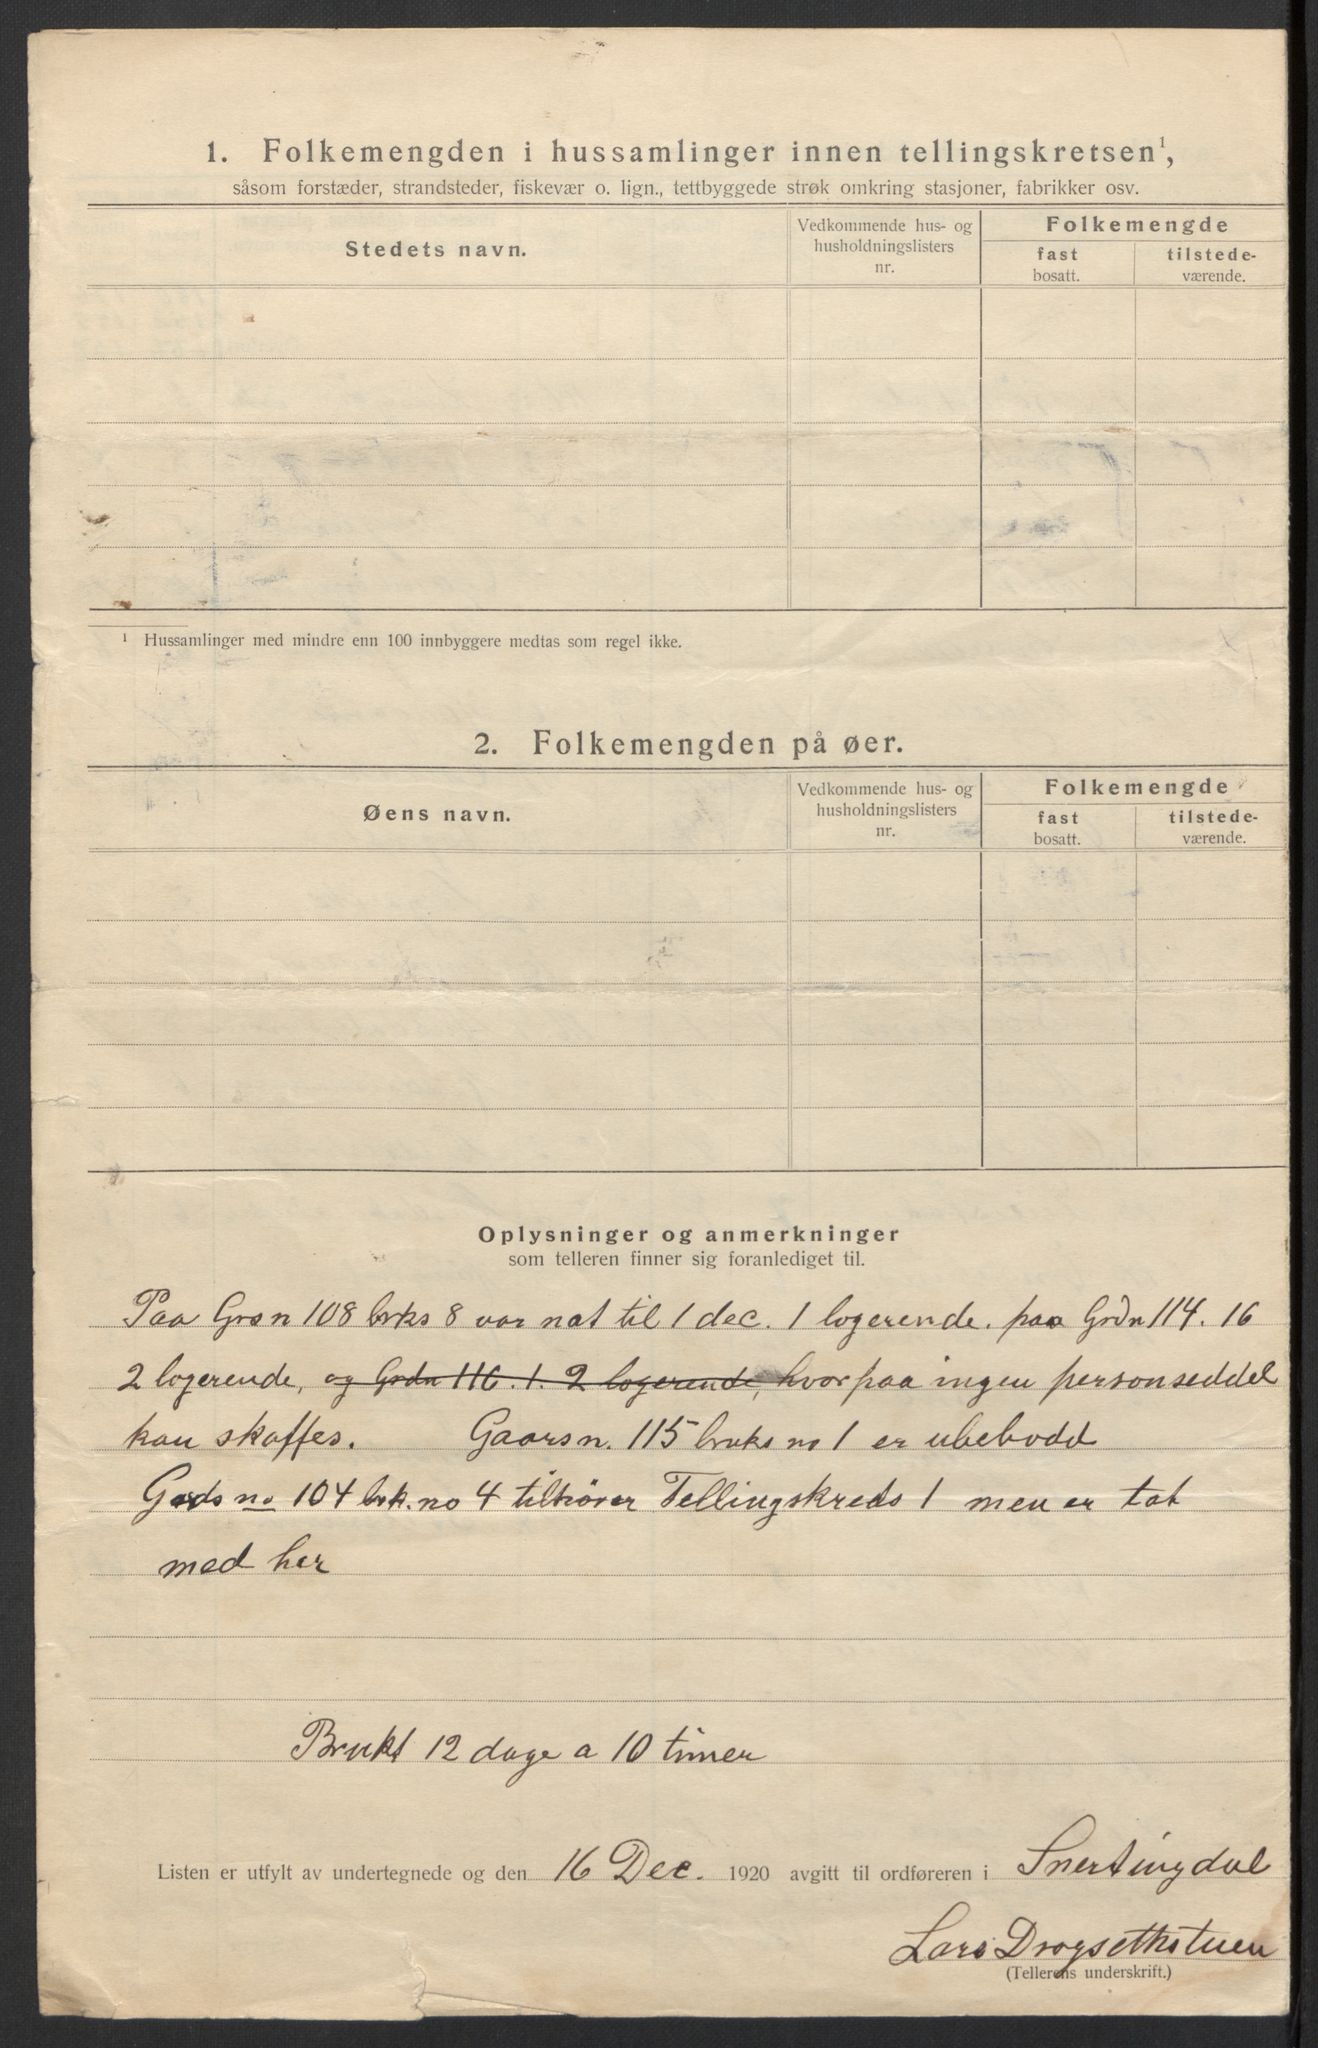 1. Folkemengden i hussamlinger innen tellingskretsen¹,
såsom forstæder, strandsteder, fiskevær o. lign., tettbyggede strøk omkring stasjoner, fabrikker osv.
Stedets navn.
Vedkommende hus- og
husholdningslisters
nr.
Folkemengde
fast
bosatt.
tilstede-
værende.
¹ Hussamlinger med mindre enn 100 innbyggere medtas som regel ikke.
2. Folkemengden på øer.
Øens navn.
Vedkommende hus- og
husholdningslisters
nr.
Folkemengde
fast
bosatt.
tilstede-
værende.
Oplysninger og anmerkninger
som telleren finner sig foranlediget til.
Paa Grsn 108 brks 8 var nat til 1 dec. 1 logerende. paa Grdn 114. 16
2 logerende, og Grdn 116. 1. 2 logerende, hvorpaa ingen personseddel
kan skaffes. Gaarsn. 115 bruks no 1 er ubebodd
Gards no 104 brk. no 4 tilhörer Tellingskreds 1 men er tat
med her
Brukt 12 dage a 10 timer
Listen er utfylt av undertegnede og den 16 Dec. 1920 avgitt til ordføreren i Snertingdal
Lars Drogsethstuen
(Tellerens underskrift.)